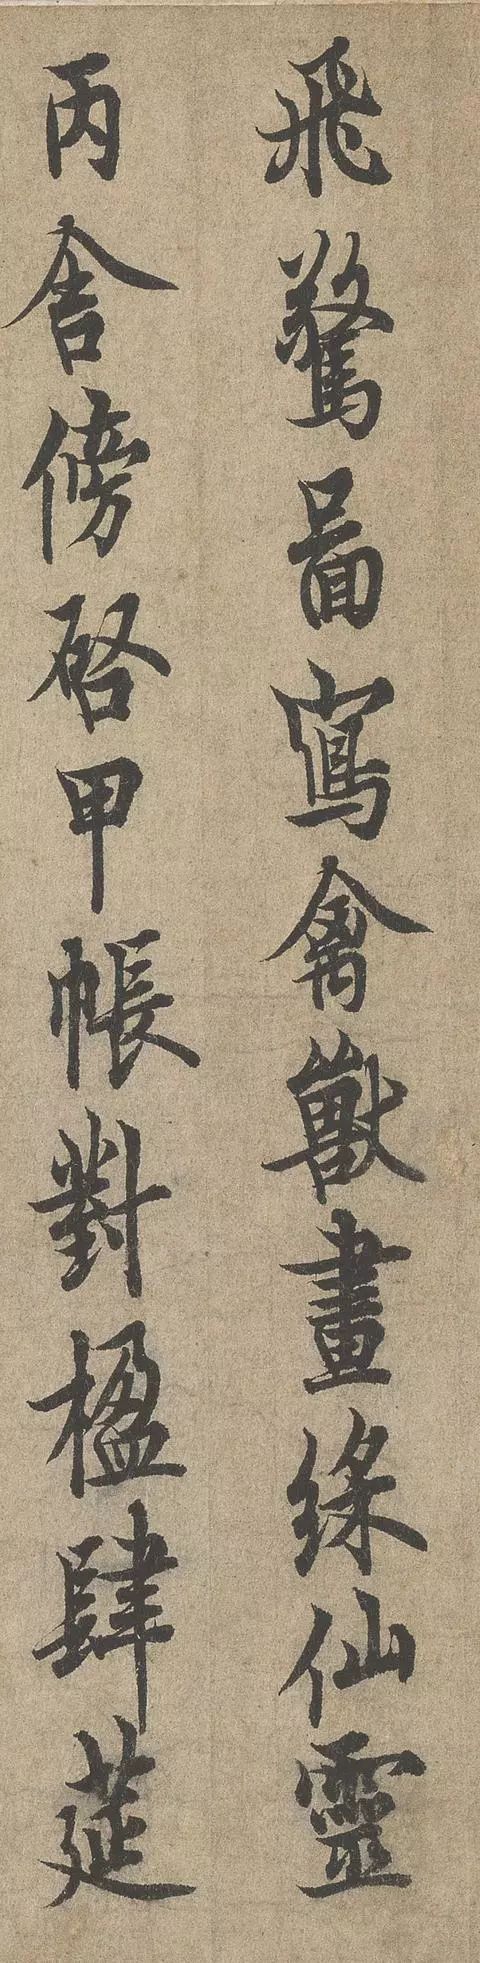 飛驚啚寫禽獸畫綵仙靈
丙舍傍啓甲帳對楹肆莚